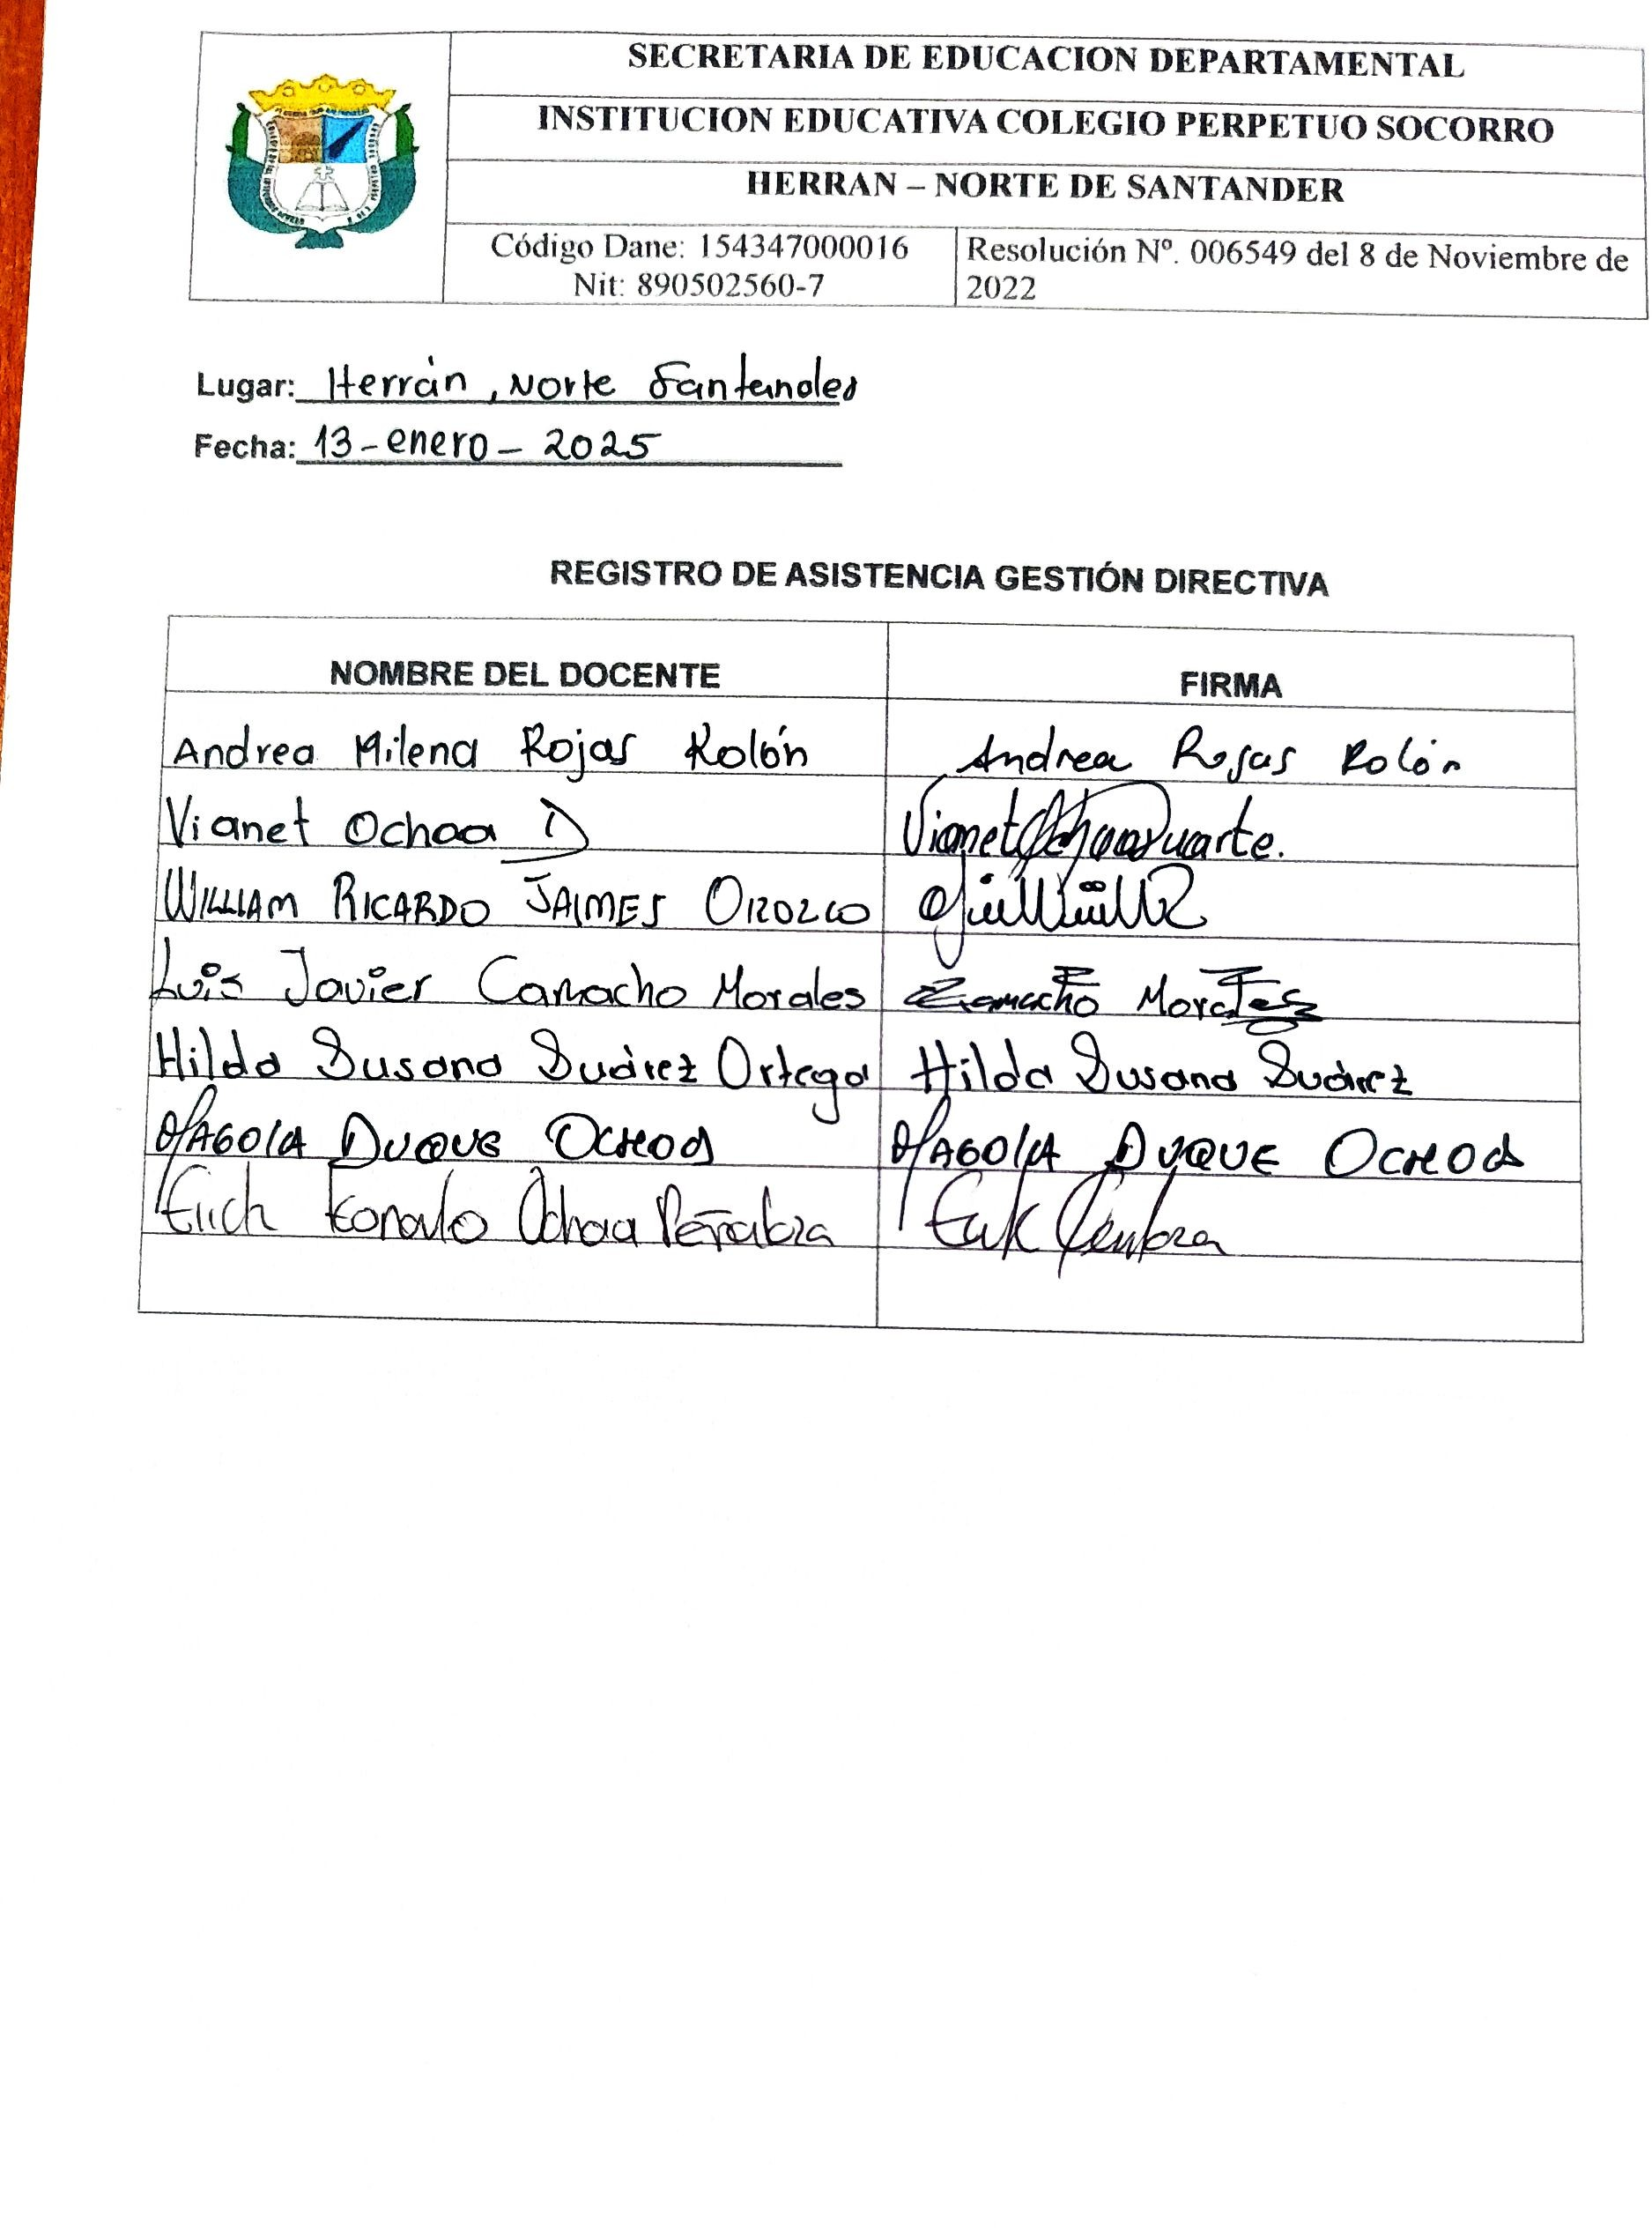 SECRETARIA DE EDUCACION DEPARTAMENTAL
INSTITUCION EDUCATIVA COLEGIO PERPETUO SOCORRO
HERRAN – NORTE DE SANTANDER
Código Dane: 154347000016
Nit: 890502560-7
Resolución Nº. 006549 del 8 de Noviembre de
2022
Lugar: Herrán, Norte Santander
Fecha: 13-enero-2025
REGISTRO DE ASISTENCIA GESTIÓN DIRECTIVA
NOMBRE DEL DOCENTE FIRMA
Andrea Milena Rojas Rolón Andrea Rojas Rolón
Vianet Ochoa D Vianet Ochoa Duarte.
WILLIAM RICARDO JAIMES OROZCO
Luis Javier Camacho Morales Camacho Morales
Hilda Susana Suárez Ortega Hilda Susana Suárez
MAGOLA DUQUE OCHOA MAGOLA DUQUE OCHOA
Erich Ochoa Peñaloza